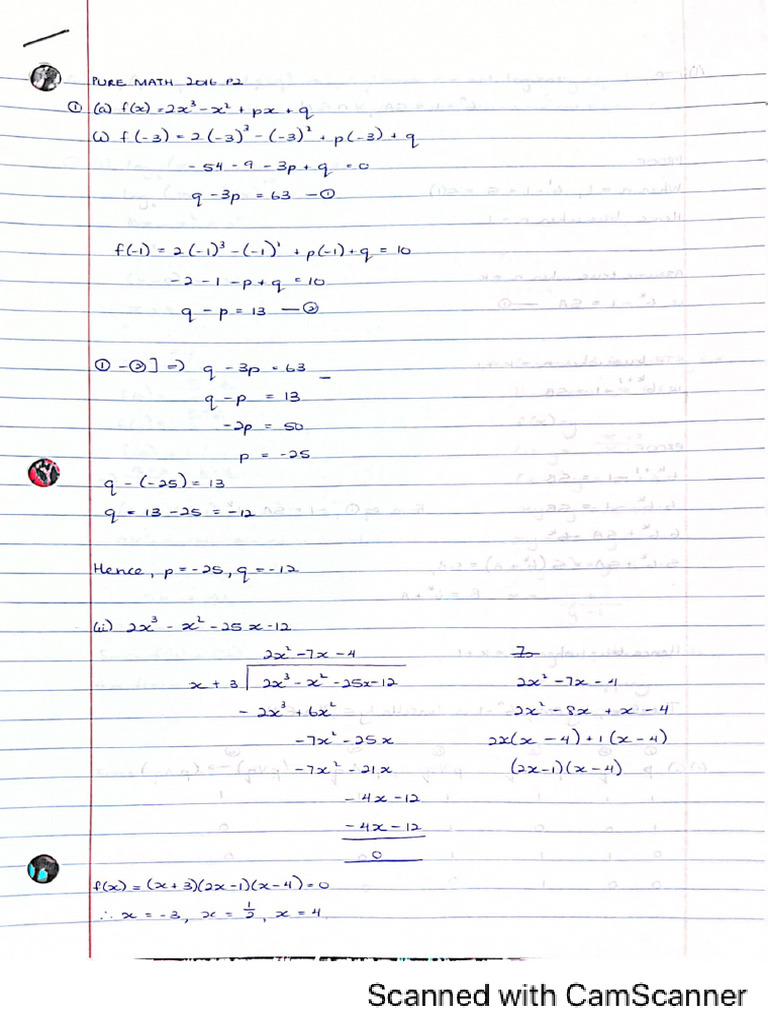 PURE MATH 2016 P2
① (a) f(x) = 2x³ - x² + px + q
(i) f(-3) = 2(-3)³ - (-3)² + p(-3) + q
- 54 - 9 - 3p + q = 0
q - 3p = 63 — ①
f(-1) = 2(-1)³ - (-1)² + p(-1) + q = 10
- 2 - 1 - p + q = 10
q - p = 13 — ②
① - ②] => q - 3p = 63 -
q - p = 13
-2p = 50
p = -25
q - (-25) = 13
q = 13 - 25 = -12
Hence, p = -25, q = -12
(ii) 2x³ - x² - 25x - 12
2x² - 7x - 4
x + 3 | 2x³ - x² - 25x - 12
- 2x³ + 6x²
-7x² - 25x
-7x² - 21x
- 4x - 12
- 4x - 12
0
2x² - 7x - 4
2x² - 8x + x - 4
2x(x - 4) + 1(x - 4)
(2x - 1)(x - 4)
f(x) = (x + 3)(2x - 1)(x - 4) = 0
∴ x = -3, x = 1/2, x = 4
Scanned with CamScanner